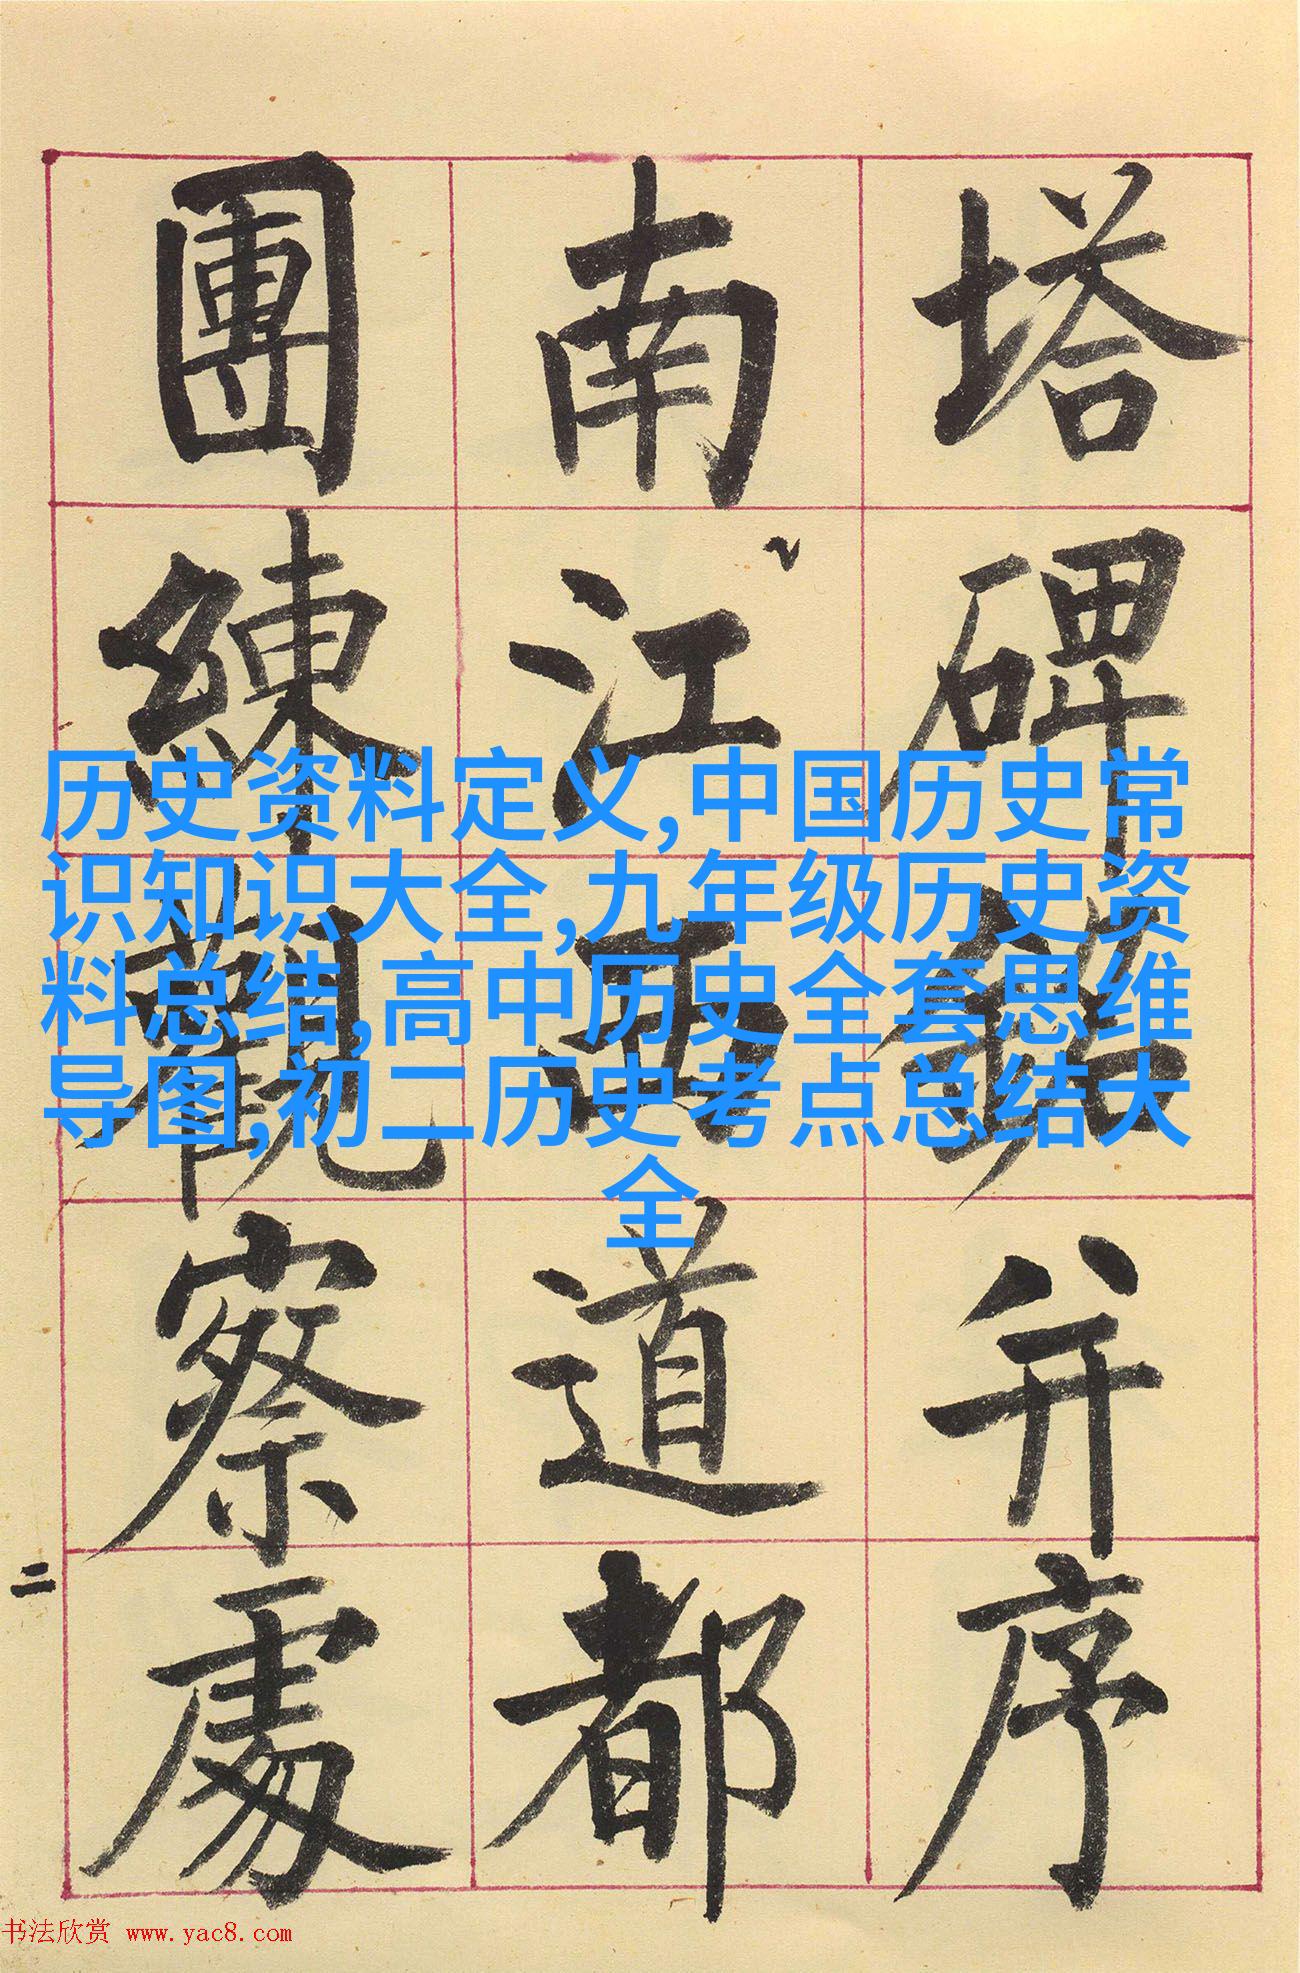 塔碑銘并序
南江西道都
團練觀察處
二
历史资料定义,中国历史常
识知识大全,九年级历史资
料总结,高中历史全套思维
导图,初二历史考点总结大
全
书法欣赏 www.yac8.com